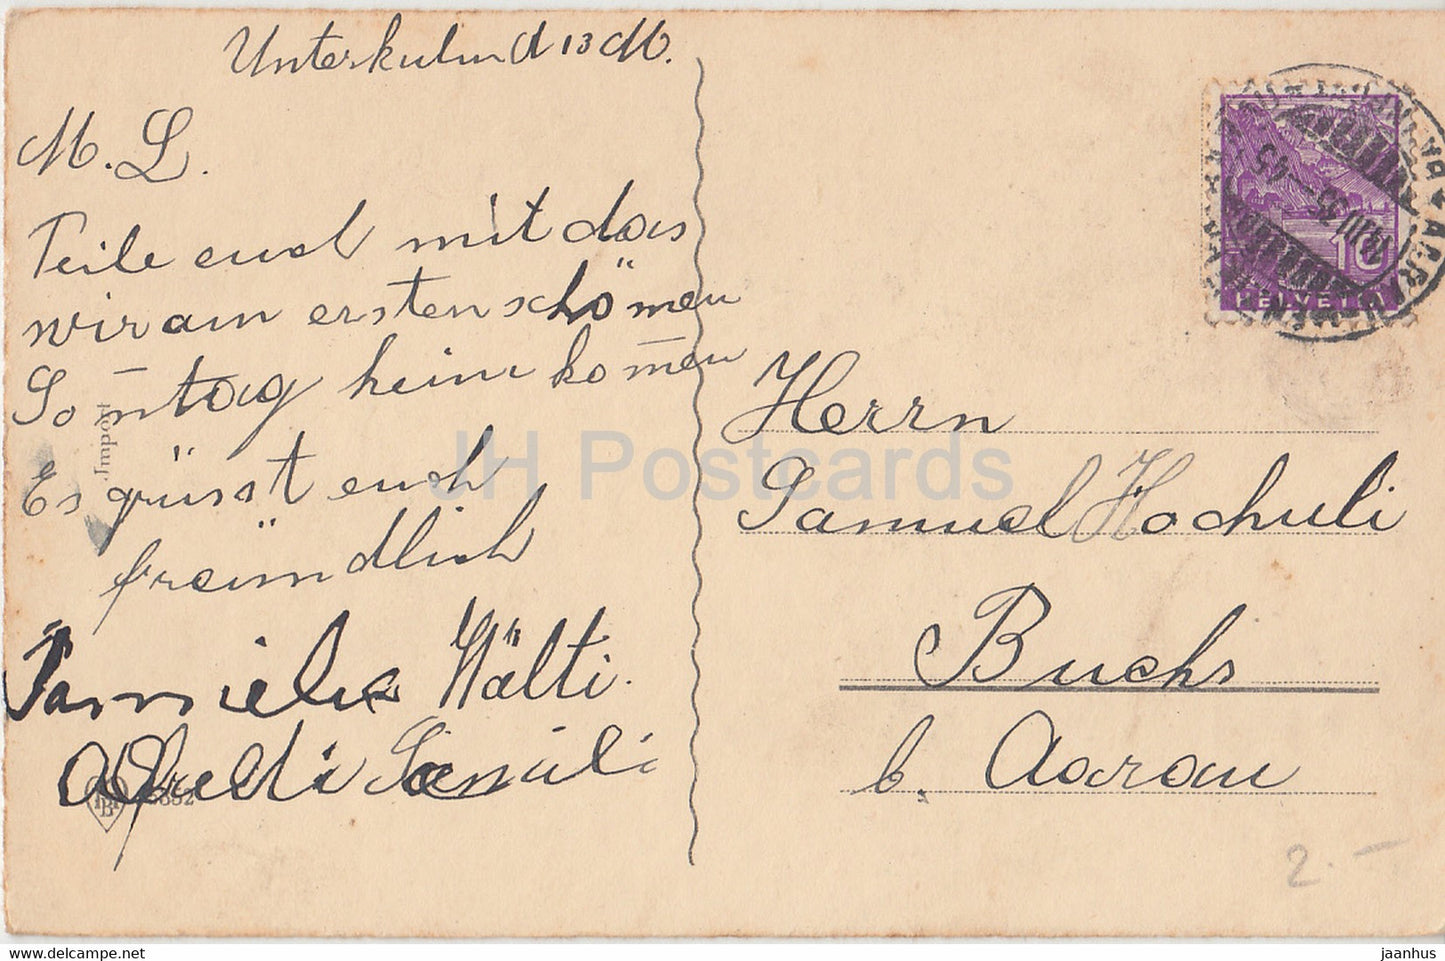 Unterkulm d 13 M.
M. L.
Teile euch mit das
wir am ersten schönen
Sontag heim komen
Es grüsst euch
freundlich
Familie Wälti.
Fredi Samuli
Import
Herrn
Samuel Hochuli
Buchs
b. Aarau
10
HELVETIA
JH Postcards
2.–
www.hippostcard.com
jaanhus